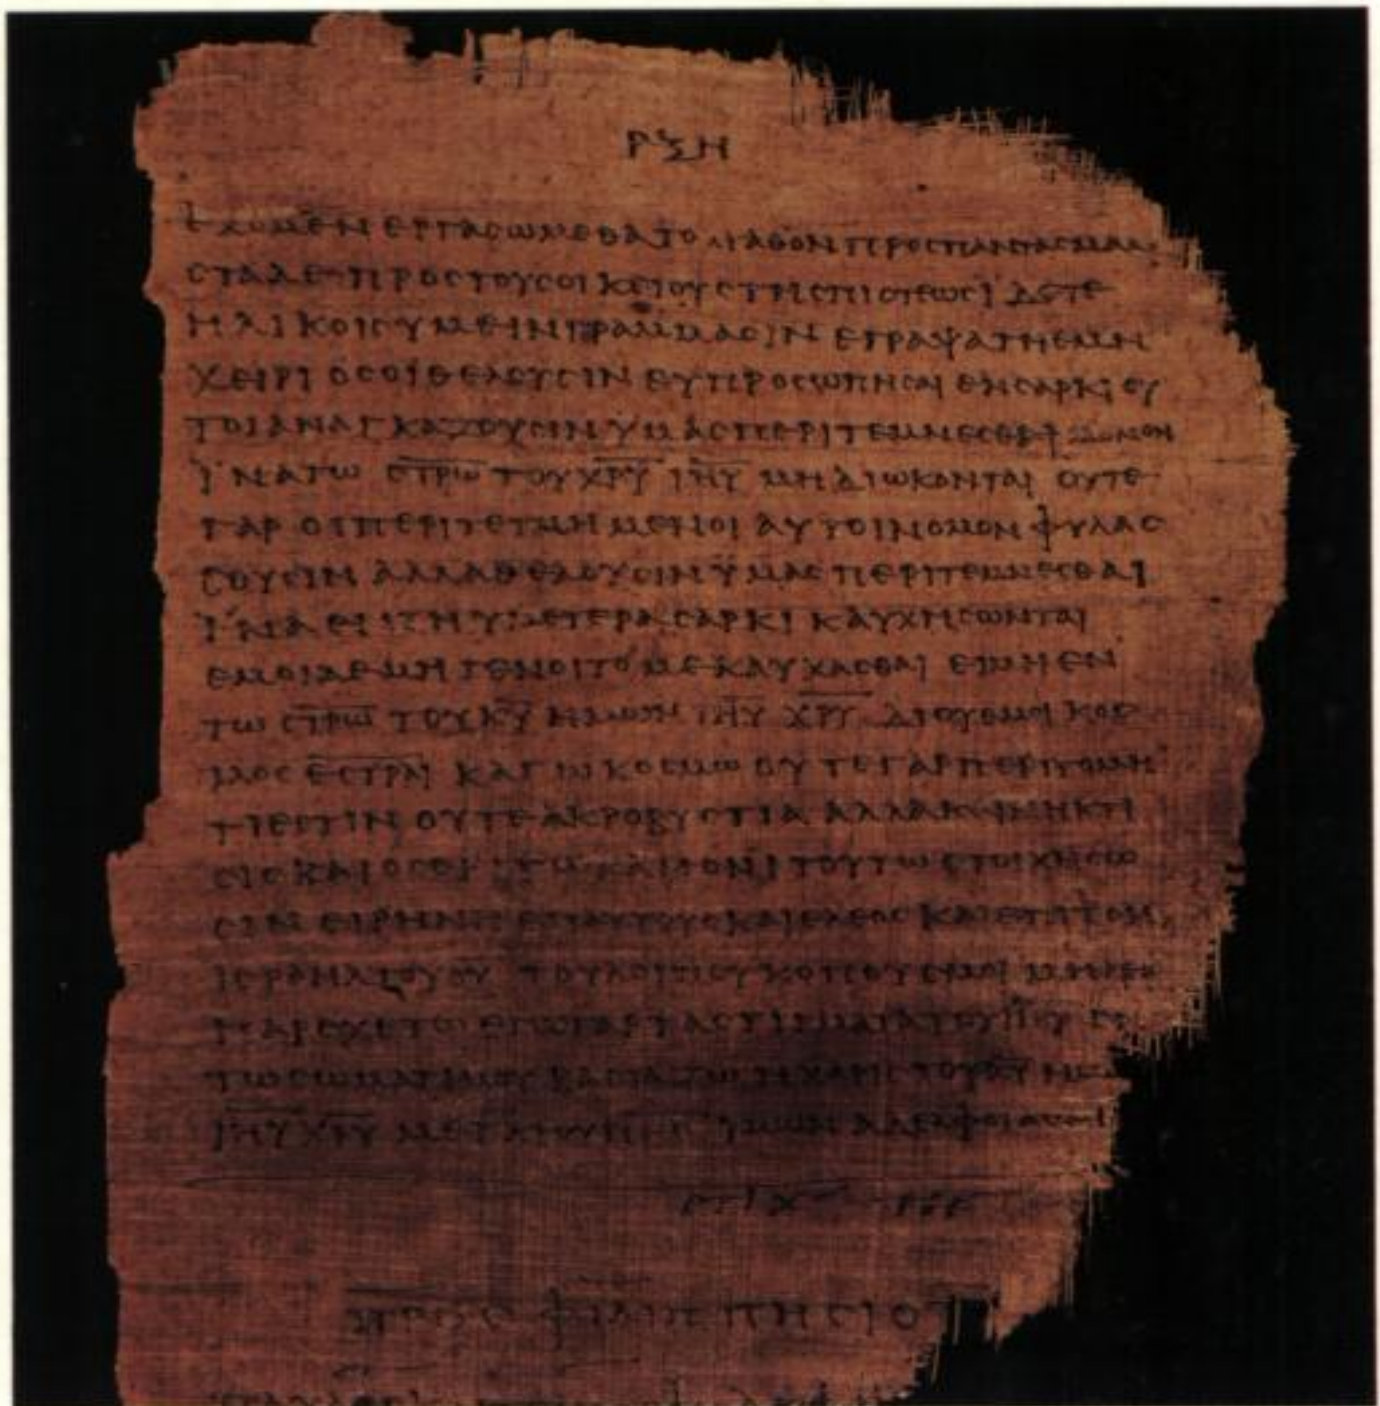 ΡΞΗ
ΕΧΟΜΕΝ ΕΡΓΑϹΩΜΕΘΑ ΤΟ ΑΓΑΘΟΝ ΠΡΟϹ ΠΑΝΤΑϹ
ϹΤΑ ΔΕ ΠΡΟϹ ΤΟΥϹ ΟΙΚΕΙΟΥϹ ΤΗϹ ΠΙϹΤΕΩϹ ΙΔΕΤΕ
ΗΛΙΚΟΙϹ ΥΜΕΙΝ ΓΡΑΜΜΑϹΙΝ ΕΓΡΑΨΑ ΤΗ ΕΜΗ
ΧΕΙΡΙ ΟϹΟΙ ΘΕΛΟΥϹΙΝ ΕΥΠΡΟϹΩΠΗϹΑΙ ΕΝ ϹΑΡΚΙ ΟΥ
ΤΟΙ ΑΝΑΓΚΑΖΟΥϹΙΝ ΥΜΑϹ ΠΕΡΙΤΕΜΝΕϹΘΑΙ ΜΟΝΟΝ
ΙΝΑ ΤΩ Ϲ̅Τ̅Ρ̅Ω̅ ΤΟΥ Χ̅Ρ̅Υ̅ Ι̅Η̅Υ̅ ΜΗ ΔΙΩΚΟΝΤΑΙ ΟΥΤΕ
ΓΑΡ ΟΙ ΠΕΡΙΤΕΤΜΗΜΕΝΟΙ ΑΥΤΟΙ ΝΟΜΟΝ ΦΥΛΑϹ
ϹΟΥϹΙΝ ΑΛΛΑ ΘΕΛΟΥϹΙΝ ΥΜΑϹ ΠΕΡΙΤΕΜΝΕϹΘΑΙ
ΙΝΑ ΕΝ ΤΗ ΥΜΕΤΕΡΑ ϹΑΡΚΙ ΚΑΥΧΗϹΩΝΤΑΙ
ΕΜΟΙ ΔΕ ΜΗ ΓΕΝΟΙΤΟ ΜΕ ΚΑΥΧΑϹΘΑΙ ΕΙ ΜΗ ΕΝ
ΤΩ Ϲ̅Τ̅Ρ̅Ω̅ ΤΟΥ Κ̅Υ̅ ΗΜΩΝ Ι̅Η̅Υ̅ Χ̅Ρ̅Υ̅ ΔΙ ΟΥ ΕΜΟΙ ΚΟϹ
ΜΟϹ Ε̅Ϲ̅Τ̅Ρ̅Α̅Ι̅ ΚΑΓΩ ΚΟϹΜΩ ΟΥΤΕ ΓΑΡ ΠΕΡΙΤΟΜΗ
ΤΙ ΕϹΤΙΝ ΟΥΤΕ ΑΚΡΟΒΥϹΤΙΑ ΑΛΛΑ ΚΑΙΝΗ ΚΤΙ
ϹΙϹ ΚΑΙ ΟϹΟΙ ΤΩ ΚΑΝΟΝΙ ΤΟΥΤΩ ϹΤΟΙΧΗϹΩ
ϹΙΝ ΕΙΡΗΝΗ ΕΠ ΑΥΤΟΥϹ ΚΑΙ ΕΛΕΟϹ ΚΑΙ ΕΠΙ ΤΟΝ
ΙϹΡΑΗΛ ΤΟΥ Θ̅Υ̅ ΤΟΥ ΛΟΙΠΟΥ ΚΟΠΟΥϹ ΜΟΙ ΜΗΔΕΙϹ
ΠΑΡΕΧΕΤΩ ΕΓΩ ΓΑΡ ΤΑ ϹΤΙΓΜΑΤΑ ΤΟΥ Ι̅Η̅Υ̅ ΕΝ
ΤΩ ϹΩΜΑΤΙ ΜΟΥ ΒΑϹΤΑΖΩ Η ΧΑΡΙϹ ΤΟΥ Κ̅Υ̅
Ι̅Η̅Υ̅ Χ̅Ρ̅Υ̅ ΜΕΤΑ ΥΜΩΝ ΑΔΕΛΦΟΙ ΑΜΗΝ
ϹΤΙΧ
ΠΡΟϹ ΦΙΛΙΠΠΗϹΙΟΥ